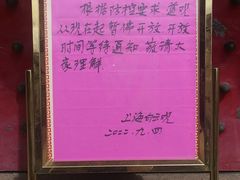 根据防控要求 道观
从现在起 暂停开放 开放
时间等待通知 敬请大
家理解
上海白云观
2022.九.四